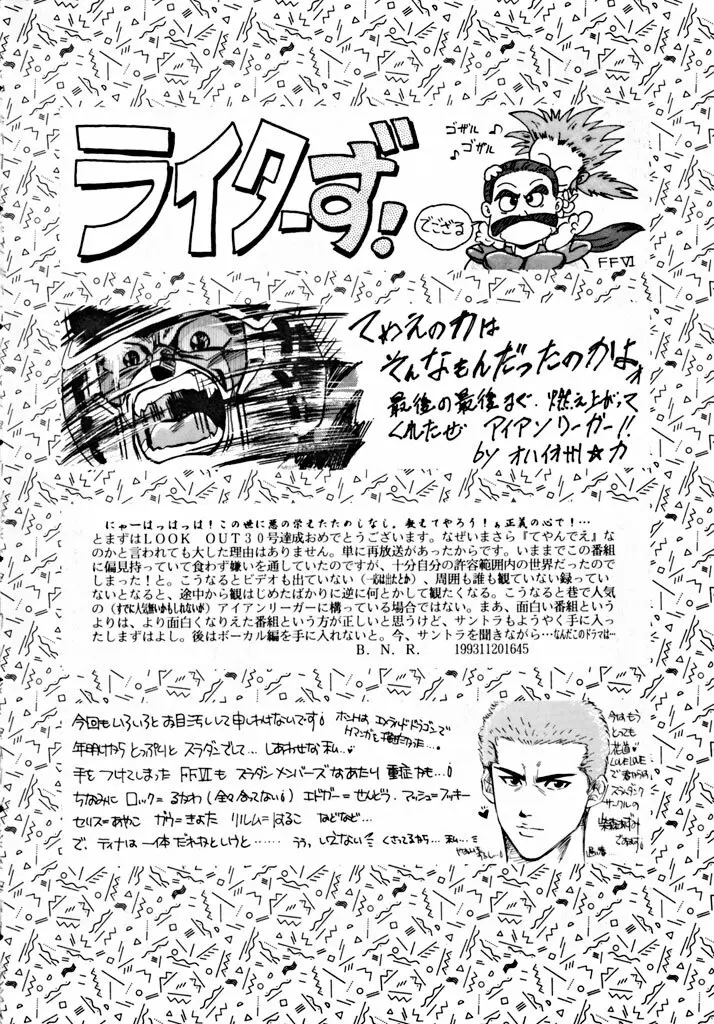 ライターず！
ゴザル♪
♪ゴザル
でござる
FFVI
てめえの力は
そんなもんだったのかよォ
最後の最後まで、燃え上がって
くれたぜ アイアンリーガー!!
by オハイオ州☆力
にゃーはっはっは！この世に悪の栄えたためしなし。教えてやろう！ぁ正義の心で！…
とまずはLOOK OUT30号達成おめでとうございます。なぜいまさら『てやんでえ』な
のかと言われても大した理由はありません。単に再放送があったからです。いままでこの番組
に偏見持っていて食わず嫌いを通していたのですが、十分自分の許容範囲内の世界だったので
しまった！と。こうなるとビデオも出ていない、周囲も誰も観ていない録ってい
ないとなると、途中から観はじめたばかりに逆に何とかして観たくなる。こうなると巷で人気
の（すでに人気無いかもしれないが）アイアンリーガーに構っている場合ではない。まあ、面白い番組という
よりは、より面白くなりえた番組という方が正しいと思うけど、サントラもようやく手に入っ
たしまずはよし。後はボーカル編を手に入れないと。今、サントラを聞きながら…なんだこのドラマは…
B．N．R． 199311201645
今回もいろいろとお目汚しして申しわけないです！ ホントは エメラルドドラゴンで
マンガと描きたかった…
年明けから とっぷりと スラダンでして… しあわせな 私…
手をつけてしまった FFVIも スラダンメンバーズなあたり 重症かも…
ちなみに ロック＝るかわ（全々合ってない！ エドガー＝せんどう、マッシュ＝フッキー
セリス＝あやこ ガウ＝きよた リルム＝はるこ などなど…
で、ティナは一体だれなというと…… うぅ、いえない くさってるから…私…
今はもう
とても
花道
LOVELOVE
で
スラムダンク
サークルの